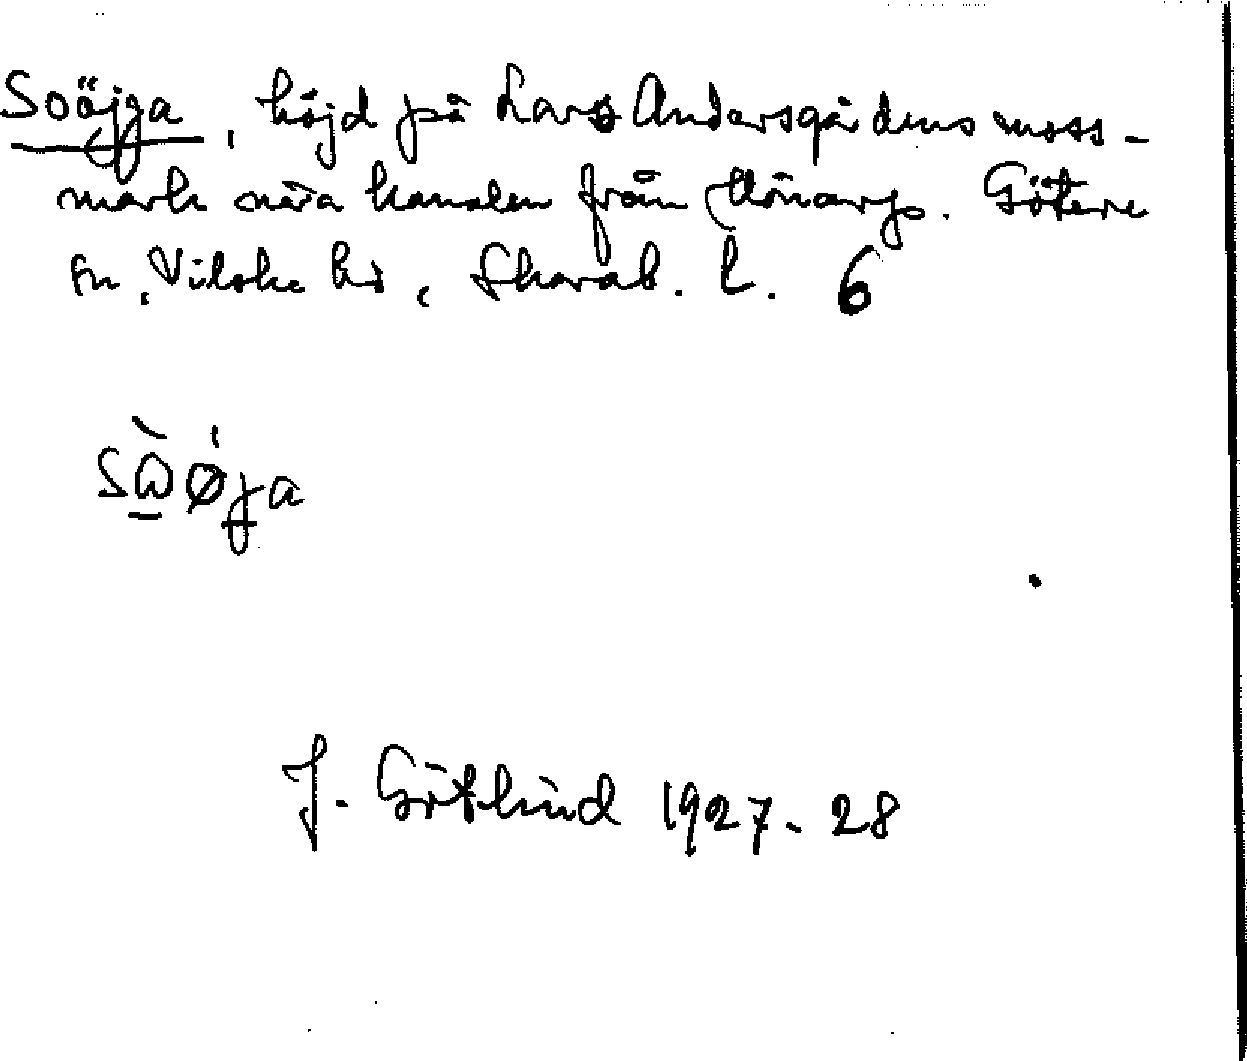 Soöjja, höjd på Lars Andersgårdens moss-
mark nära kanalen från Mönarp. Götene
sn, Vilske hd, Skarab. l. 6
J. Götlind 1927-28